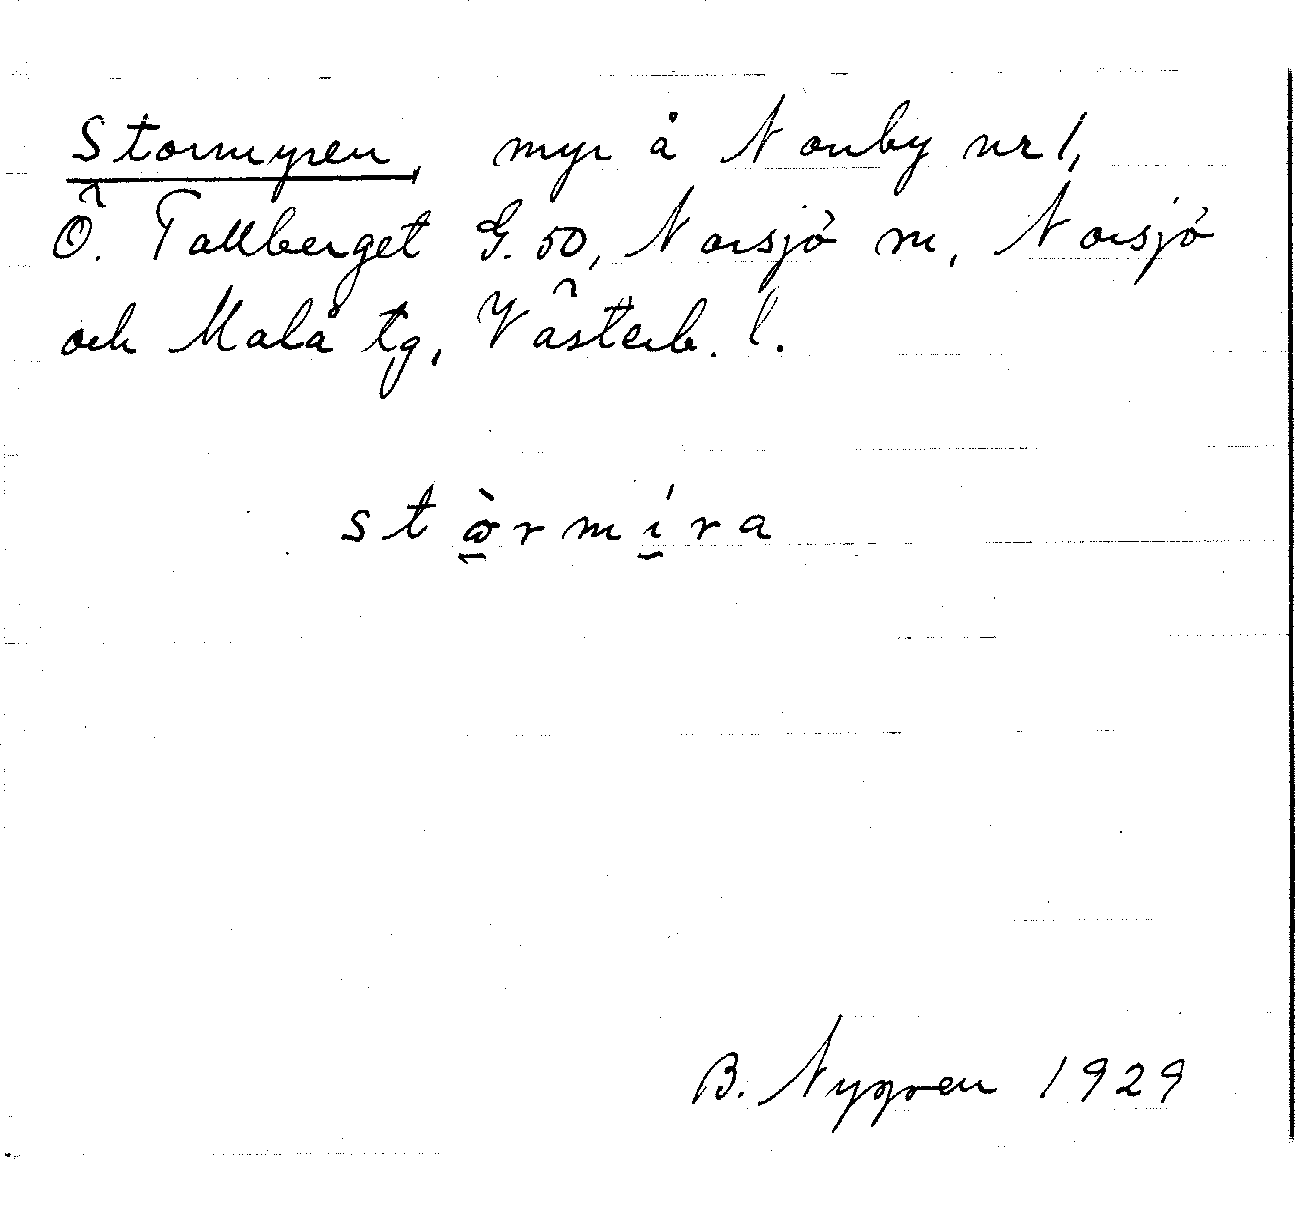 Stormyren, myr å Norrby nr 1,
Ö. Tallberget G. 50, Norsjö m, Norsjö
och Malå tg, Västerb. l.
stò̱rmí̱ra
B. Nygren 1929